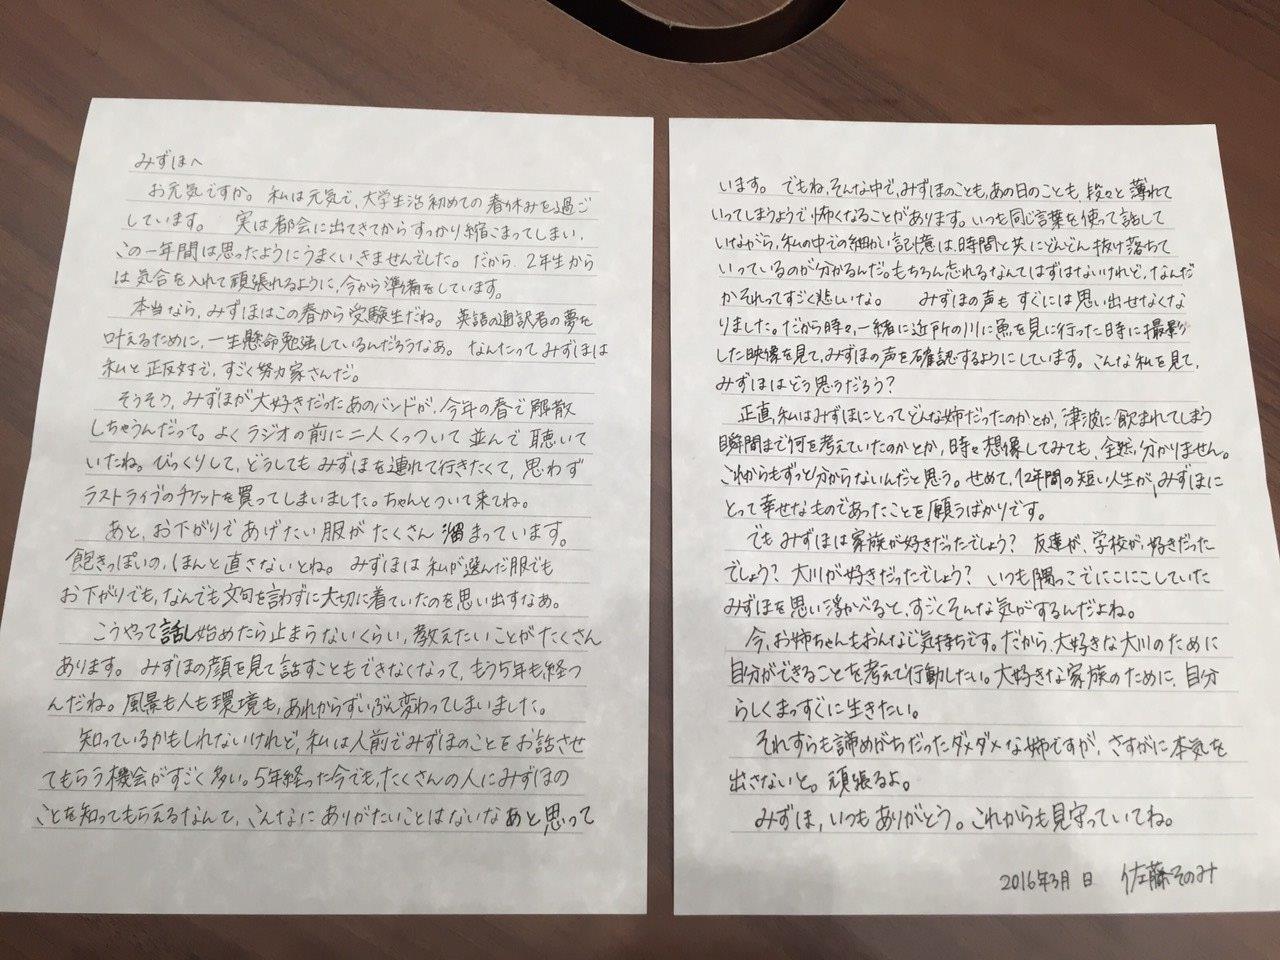 みずほへ
お元気ですか。私は元気で、大学生活初めての春休みを過ご
しています。 実は都会に出てきてからすっかり縮こまってしまい、
この一年間は思ったようにうまくいきませんでした。だから、2年生から
は気合を入れて頑張れるように、今から準備をしています。
本当なら、みずほはこの春から受験生だね。英語の通訳者の夢を
叶えるために、一生懸命勉強しているんだろうなあ。なんたってみずほは
私と正反対で、すごく努力家さんだ。
そうそう、みずほが大好きだったあのバンドが、今年の春で解散
しちゃうんだって。よくラジオの前に二人くっついて並んで聴いて
いたね。びっくりして、どうしてもみずほを連れて行きたくて、思わず
ラストライブのチケットを買ってしまいました。ちゃんとついて来てね。
あと、お下がりであげたい服がたくさん溜まっています。
飽きっぽいの、ほんと直さないとね。みずほは私が選んだ服でも
お下がりでも、なんでも文句を言わずに大切に着ていたのを思い出すなあ。
こうやって話し始めたら止まらないくらい、教えたいことがたくさん
あります。みずほの顔を見て話すこともできなくなって、もう5年も経つ
んだね。風景も人も環境も、あれからずいぶん変わってしまいました。
知っているかもしれないけれど、私は人前でみずほのことをお話させ
てもらう機会がすごく多い。5年経った今でも、たくさんの人にみずほの
ことを知ってもらえるなんて、こんなにありがたいことはないなあと思って
います。でもね、そんな中で、みずほのことも、あの日のことも、段々と薄れて
いってしまうようで怖くなることがあります。いつも同じ言葉を使って話して
いながら、私の中での細かい記憶は、時間と共にどんどん抜け落ちて
いっているのが分かるんだ。もちろん忘れるなんてはずはないけれど、なんだ
かそれってすごく悲しいな。 みずほの声もすぐには思い出せなくな
りました。だから時々、一緒に近所の川に魚を見に行った時に撮影
した映像を見て、みずほの声を確認するようにしています。こんな私を見て、
みずほはどう思うだろう？
正直、私はみずほにとってどんな姉だったのかとか、津波に飲まれてしまう
瞬間まで何を考えていたのかとか、時々想像してみても、全然分かりません。
これからもずっと分からないんだと思う。せめて、12年間の短い人生が、みずほに
とって幸せなものであったことを願うばかりです。
でもみずほは家族が好きだったでしょう？ 友達が、学校が、好きだった
でしょう？大川が好きだったでしょう？ いつも隅っこでにこにこしていた
みずほを思い浮かべると、すごくそんな気がするんだよね。
今、お姉ちゃんもおんなじ気持ちです。だから、大好きな大川のために
自分ができることを考えて行動したい。大好きな家族のために、自分
らしくまっすぐに生きたい。
それすらも諦めがちだったダメダメな姉ですが、さすがに本気を
出さないと。頑張るよ。
みずほ、いつもありがとう。これからも見守っていてね。
2016年3月 日 佐藤そのみ